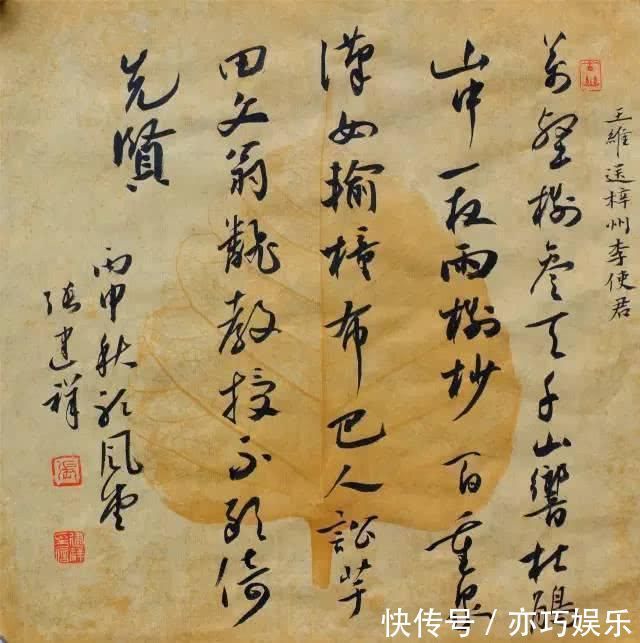 王維送梓州李使君
萬壑樹參天千山響杜鵑
山中一夜雨樹杪百重泉
漢女輸橦布巴人訟芋
田文翁翻教授不敢倚
先賢
丙申秋風
張建祥
張
快传号 / 亦巧娱乐